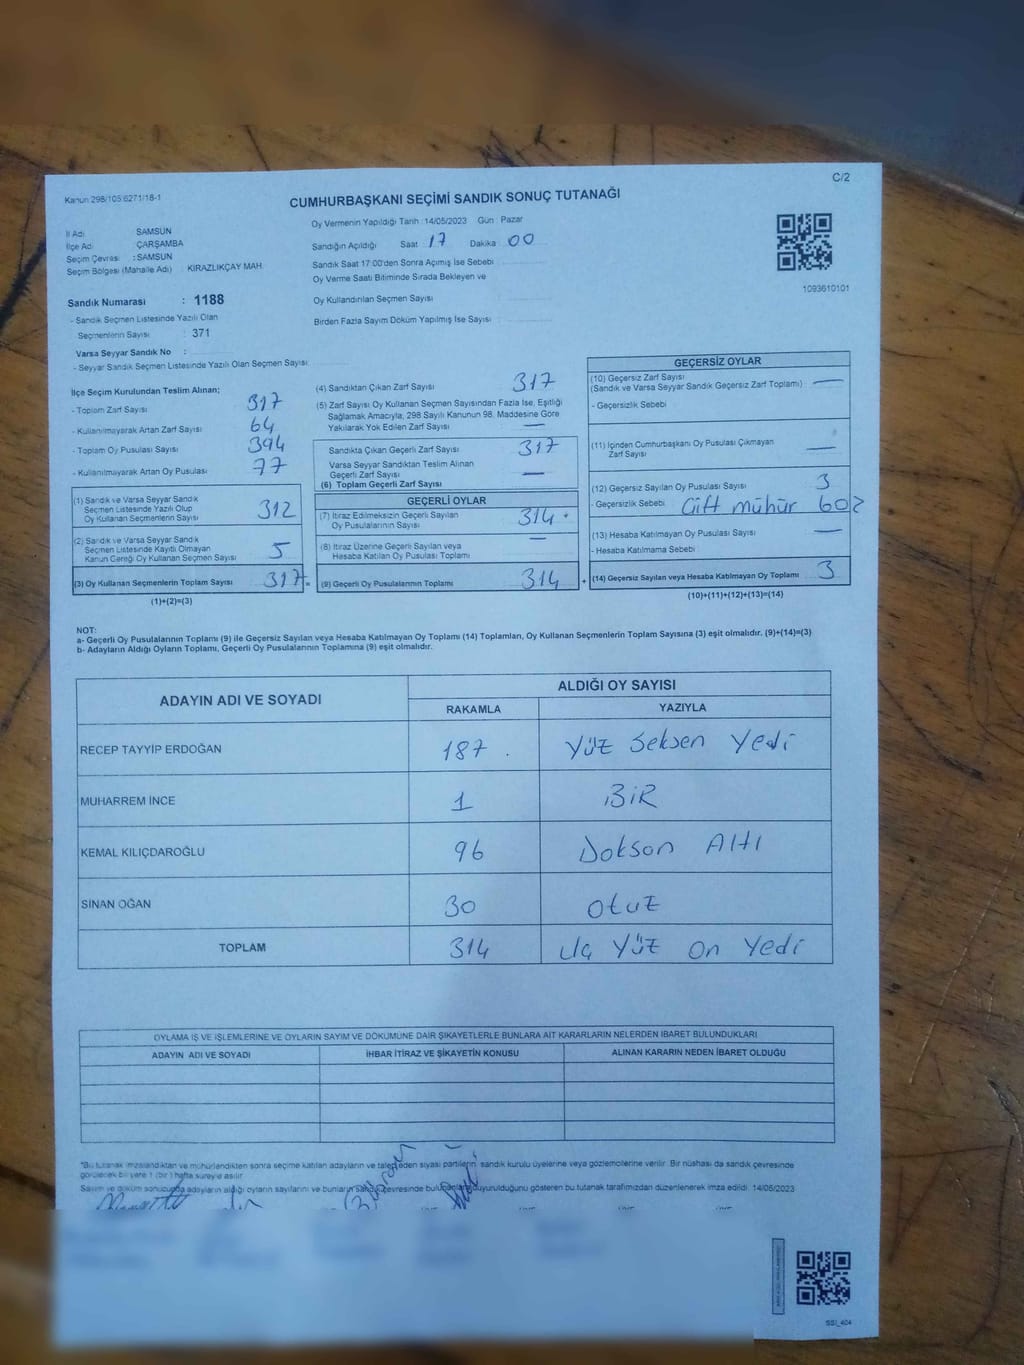 C/2
Kanun 298/105:6271/18-1
CUMHURBAŞKANI SEÇİMİ SANDIK SONUÇ TUTANAĞI
Oy Vermenin Yapıldığı Tarih 14/05/2023 Gün : Pazar
İl Adı SAMSUN
İlçe Adı ÇARŞAMBA
Seçim Çevresi : SAMSUN
Seçim Bölgesi (Mahalle Adı) : KİRAZLIKÇAY MAH.
Sandığın Açıldığı Saat 17 Dakika 00
Sandık Saat 17:00'den Sonra Açımış İse Sebebi
Oy Verme Saati Bitiminde Sırada Bekleyen ve
Oy Kullandırılan Seçmen Sayısı
Birden Fazla Sayım Döküm Yapılmış İse Sayısı
1093610101
Sandık Numarası : 1188
- Sandık Seçmen Listesinde Yazılı Olan
Seçmenlerin Sayısı : 371
Varsa Seyyar Sandık No :
- Seyyar Sandık Seçmen Listesinde Yazılı Olan Seçmen Sayısı
İlçe Seçim Kurulundan Teslim Alınan;
- Toplam Zarf Sayısı 317
- Kullanılmayarak Artan Zarf Sayısı 64
- Toplam Oy Pusulası Sayısı 394
- Kullanılmayarak Artan Oy Pusulası 77
(1) Sandık ve Varsa Seyyar Sandık
Seçmen Listesinde Yazılı Olup
Oy Kullanan Seçmenlerin Sayısı 312
(2) Sandık ve Varsa Seyyar Sandık
Seçmen Listesinde Kayıtlı Olmayan
Kanun Gereği Oy Kullanan Seçmen Sayısı 5
(3) Oy Kullanan Seçmenlerin Toplam Sayısı 317 =
(1)+(2)=(3)
(4) Sandıktan Çıkan Zarf Sayısı 317
(5) Zarf Sayısı Oy Kullanan Seçmen Sayısından Fazla İse, Eşitliği
Sağlamak Amacıyla, 298 Sayılı Kanunun 98. Maddesine Göre
Yakılarak Yok Edilen Zarf Sayısı —
Sandıkta Çıkan Geçerli Zarf Sayısı 317
Varsa Seyyar Sandıktan Teslim Alınan
Geçerli Zarf Sayısı —
(6) Toplam Geçerli Zarf Sayısı
GEÇERLİ OYLAR
(7) İtiraz Edilmeksizin Geçerli Sayılan
Oy Pusulalarının Sayısı 314
(8) İtiraz Üzerine Geçerli Sayılan veya
Hesaba Katılan Oy Pusulaları Toplamı —
(9) Geçerli Oy Pusulalarının Toplamı 314 +
GEÇERSİZ OYLAR
(10) Geçersiz Zarf Sayısı
(Sandık ve Varsa Seyyar Sandık Geçersiz Zarf Toplamı) —
- Geçersizlik Sebebi
(11) İçinden Cumhurbaşkanı Oy Pusulası Çıkmayan
Zarf Sayısı —
(12) Geçersiz Sayılan Oy Pusulası Sayısı 3
- Geçersizlik Sebebi Çift mühür
(13) Hesaba Katılmayan Oy Pusulası Sayısı —
- Hesaba Katılmama Sebebi
(14) Geçersiz Sayılan veya Hesaba Katılmayan Oy Toplamı 3
(10)+(11)+(12)+(13)=(14)
NOT:
a- Geçerli Oy Pusulalarının Toplamı (9) ile Geçersiz Sayılan veya Hesaba Katılmayan Oy Toplamı (14) Toplamları, Oy Kullanan Seçmenlerin Toplam Sayısına (3) eşit olmalıdır. (9)+(14)=(3)
b- Adayların Aldığı Oyların Toplamı, Geçerli Oy Pusulalarının Toplamına (9) eşit olmalıdır.
ADAYIN ADI VE SOYADI
ALDIĞI OY SAYISI
RAKAMLA YAZIYLA
RECEP TAYYİP ERDOĞAN 187 Yüz Seksen Yedi
MUHARREM İNCE 1 BİR
KEMAL KILIÇDAROĞLU 96 Dokson Altı
SİNAN OĞAN 30 Otuz
TOPLAM 314 Üç Yüz On Yedi
OYLAMA İŞ VE İŞLEMLERİNE VE OYLARIN SAYIM VE DÖKÜMÜNE DAİR ŞİKAYETLERLE BUNLARA AİT KARARLARIN NELERDEN İBARET BULUNDUKLARI
ADAYIN ADI VE SOYADI İHBAR İTİRAZ VE ŞİKAYETİN KONUSU ALINAN KARARIN NEDEN İBARET OLDUĞU
*Bu tutanak imzalandıktan ve mühürlendikten sonra seçime katılan adayların ve talep eden siyasi partilerin sandık kurulu üyelerine veya gözlemcilerine verilir. Bir nüshası da sandık çevresinde
görülecek bir yere 1 (bir) hafta süreyle asılır.
Sayım ve döküm sonucunda adayların aldığı oyların sayılarını ve bunların sandık çevresinde duyurulduğunu gösteren bu tutanak tarafımızdan düzenlenerek imza edildi. 14/05/2023
SSİ_404